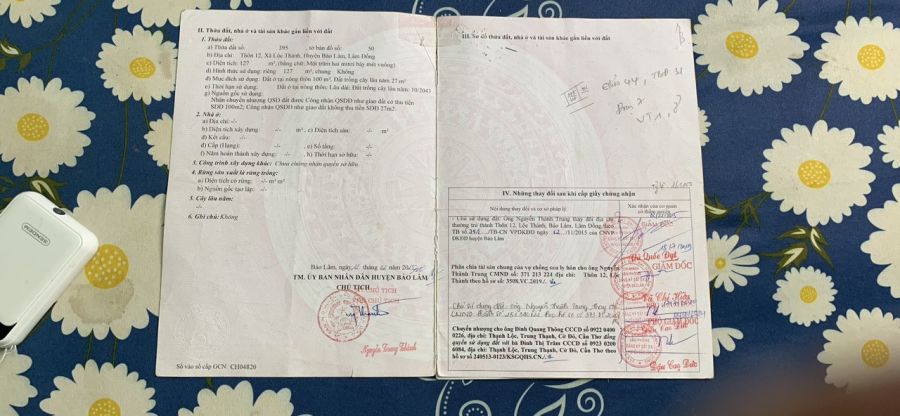 II. Thửa đất, nhà ở và tài sản khác gắn liền với đất
1. Thửa đất:
a) Thửa đất số: 295 tờ bản đồ số: 50
b) Địa chỉ: Thôn 12, Xã Lộc Thành, Huyện Bảo Lâm, Lâm Đồng
c) Diện tích: 127 m², (bằng chữ: Một trăm hai mươi bảy mét vuông)
d) Hình thức sử dụng: riêng 127 m², chung Không
đ) Mục đích sử dụng: Đất ở tại nông thôn 100 m². Đất trồng cây lâu năm 27 m²
e) Thời hạn sử dụng: Đất ở tại nông thôn: Lâu dài; Đất trồng cây lâu năm: 10/2043
g) Nguồn gốc sử dụng:
Nhận chuyển nhượng QSD đất được Công nhận QSDĐ như giao đất có thu tiền
SDĐ 100m2; Công nhận QSDĐ như giao đất không thu tiền SDĐ 27m2
2. Nhà ở:
a) Địa chỉ:-/-
b) Diện tích xây dựng -/- m², c) Diện tích sàn: -/- m²
d) Kết cấu: -/-
đ) Cấp (Hạng): -/- , e) Số tầng: -/-
f) Năm hoàn thành xây dựng: -/- h) Thời hạn sở hữu: -/-
3. Công trình xây dựng khác: Chưa chứng nhận quyền sở hữu
4. Rừng sản xuất là rừng trồng:
a) Diện tích có rừng: -/- m² m²
b) Nguồn gốc tạo lập: -/-
5. Cây lâu năm:
-/-
6. Ghi chú: Không
Bảo Lâm, ngày tháng năm
TM. ỦY BAN NHÂN DÂN HUYỆN BẢO LÂM
CHỦ TỊCH
CHỦ TỊCH
Nguyễn Trung Thành
Số vào sổ cấp GCN: CH04820
III. Sơ đồ thửa đất, nhà ở và tài sản khác gắn liền với đất
IV. Những thay đổi sau khi cấp giấy chứng nhận
Nội dung thay đổi và cơ sở pháp lý
Xác nhận của cơ quan
có thẩm quyền
Chủ sử dụng đất: Ông Nguyễn Thành Trung thay đổi địa chỉ
thường trú thành Thôn 12, Lộc Thành, Bảo Lâm, Lâm Đồng theo
TB số /TB-CN VPDKĐĐ ngày /11/2015 của CNVP
ĐKĐĐ huyện Bảo Lâm
GIÁM ĐỐC
Vũ Quốc Đạt
Phân chia tài sản chung của vợ chồng sau ly hôn cho ông Nguyễn
Thành Trung CMND số: 371 213 224 địa chỉ: Thôn 12, Lộc
Thành theo hồ sơ số: 3508.VC.2019./.
GIÁM ĐỐC
Chủ sử dụng đất: ông Nguyễn Thành Trung thay đổi
PHÓ GIÁM ĐỐC
Chuyển nhượng cho ông Đinh Quang Thông CCCD số 0922 0400
0226, địa chỉ: Thạnh Lộc, Trung Thạnh, Cờ Đỏ, Cần Thơ đồng
quyền sử dụng đất với bà Đinh Thị Trâm CCCD số 0923 0200
6084, địa chỉ: Thạnh Lộc, Trung Thạnh, Cờ Đỏ, Cần Thơ theo
hồ sơ số 240513-0123/KSGQHS.CN./.
Đậu Cao Đức